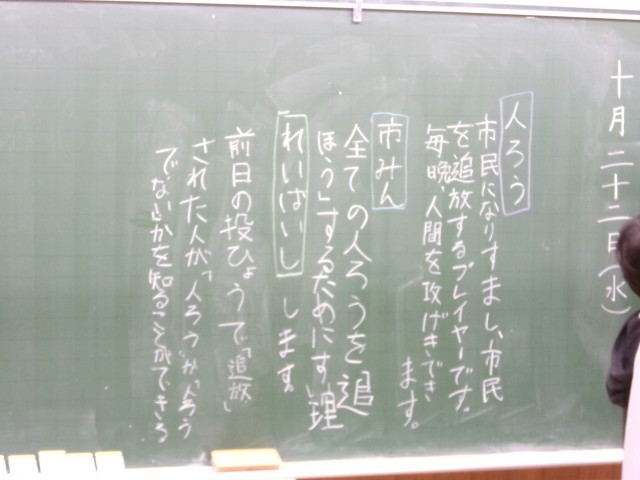 十月二十二日(水)
人ろう
市民になりすまし、市民
を追放するプレイヤーです。
毎晩、人間を攻げきできます。
市みん
全ての人ろうを追
ほう」するためにすい理
します。
れいばいし
前日の投ひょうで「追放」
された人が「人ろう」か「人ろう
でない」かを知ることができる